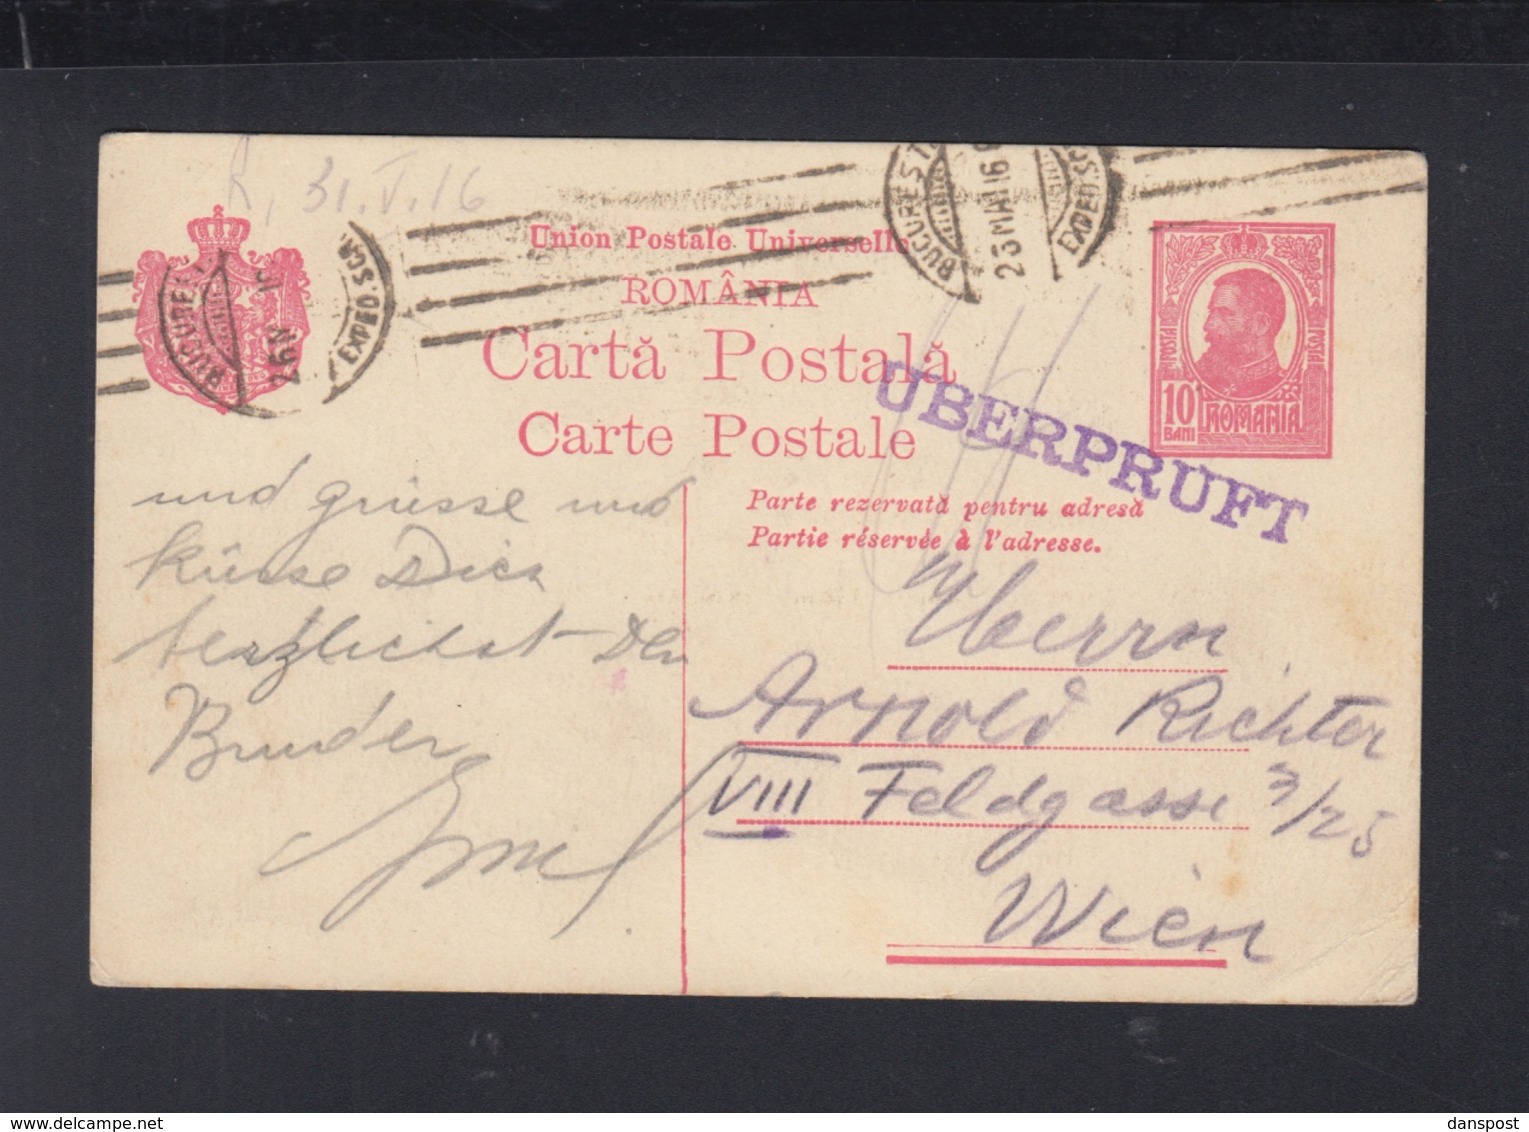 R, 31.V.16
Union Postale Universelle
ROMÂNIA
Cartă Postală
Carte Postale
BUCUREST
23 MAI 16
EXPED.SCR.
BUCURE
EXPED.SCR.
ÜBERPRÜFT
POSTA
POSTA
10
BANI
ROMANIA
Parte rezervată pentru adresă
Partie réservée à l'adresse.
und grüsse und
küsse Dich
herzlichst Dein
Bruder
Herrn
Arnold Richter
VIII Feldgasse 3/25
Wien
danspost